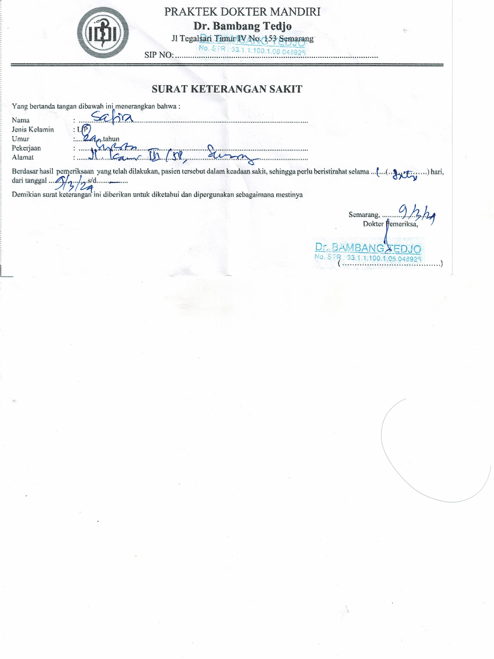 PRAKTEK DOKTER MANDIRI
Dr. Bambang Tedjo
Jl Tegalsari Timur IV No. 153 Semarang
SIP NO:
SURAT KETERANGAN SAKIT
Yang bertanda tangan dibawah ini menerangkan bahwa :
Nama : Safira
Jenis Kelamin : L/P
Umur : tahun
Pekerjaan :
Alamat : Jl.
Berdasar hasil pemeriksaan yang telah dilakukan, pasien tersebut dalam keadaan sakit, sehingga perlu beristirahat selama 1 ( ) hari,
dari tanggal s/d
Demikian surat keterangan ini diberikan untuk diketahui dan dipergunakan sebagaimana mestinya
Semarang,
Dokter Pemeriksa,
Dr. BAMBANG TEDJO
No. STR : 33.1.1.100.1.06.048929